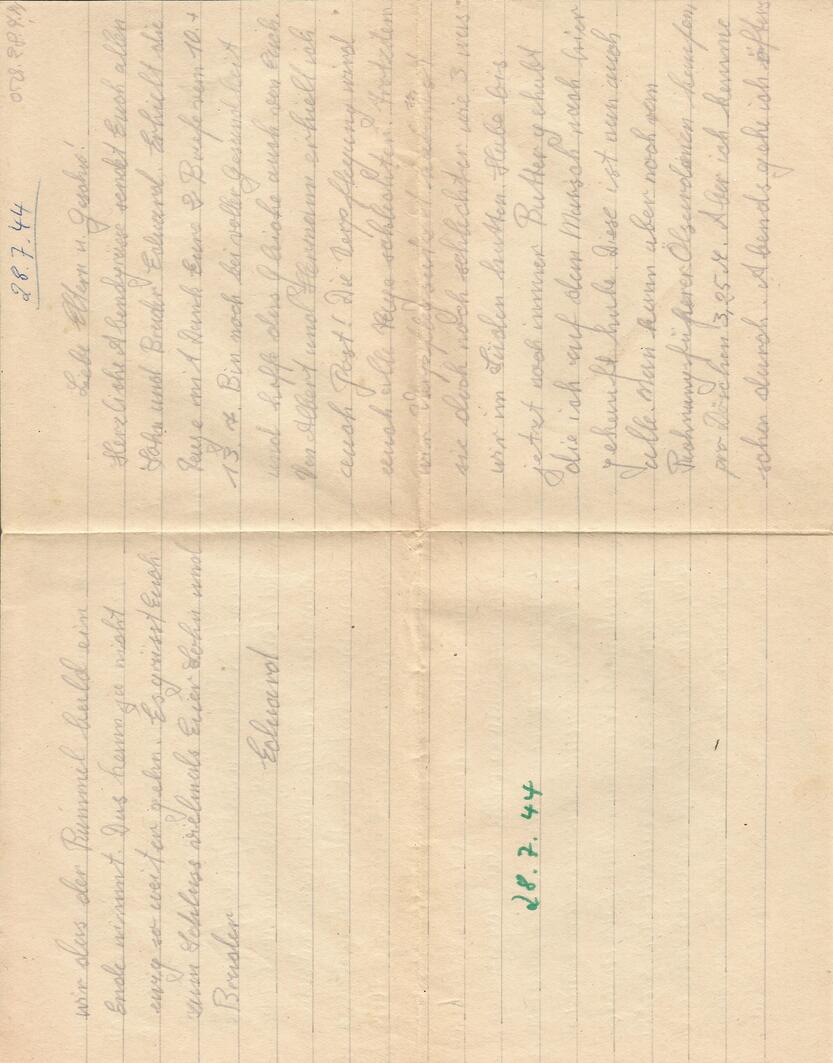 O.U. 28.7.44
28.7.44
Liebe Eltern u. Geschw.!
Herzliche Abendgrüsse sendet Euch allen
Sohn und Bruder Eduard. Erhielt die
Tage mit Dank Eure 2 Briefe vom 10. +
13. 7. Bin noch bei voller Gesundheit
und hoffe dass gleiche auch von Euch.
Von Albert und Hermann erhielt ich
auch Post! Die Verpflegung wird
auch alle Tage schlechter. Trotzdem
wir
sie doch noch schlechter wie 3 was
wir im Süden hatten. Habe bis
jetzt noch immer Butter gehabt
die ich auf dem Marsch nach hier
gekauft habe. Diese ist nun auch
alle. Man kann aber noch vom
Rechnungsführer Ölsardinen kaufen
pro Döschen 3,25 M. Aber ich komme
schon durch. Abends gehe ich öfters
wir dass der Rummel bald ein
Ende nimmt. Das kann ja nicht
ewig so weiter gehn. Es grüsst Euch
zum Schluss vielmals Euer Sohn und
Bruder
Eduard
28.7.44